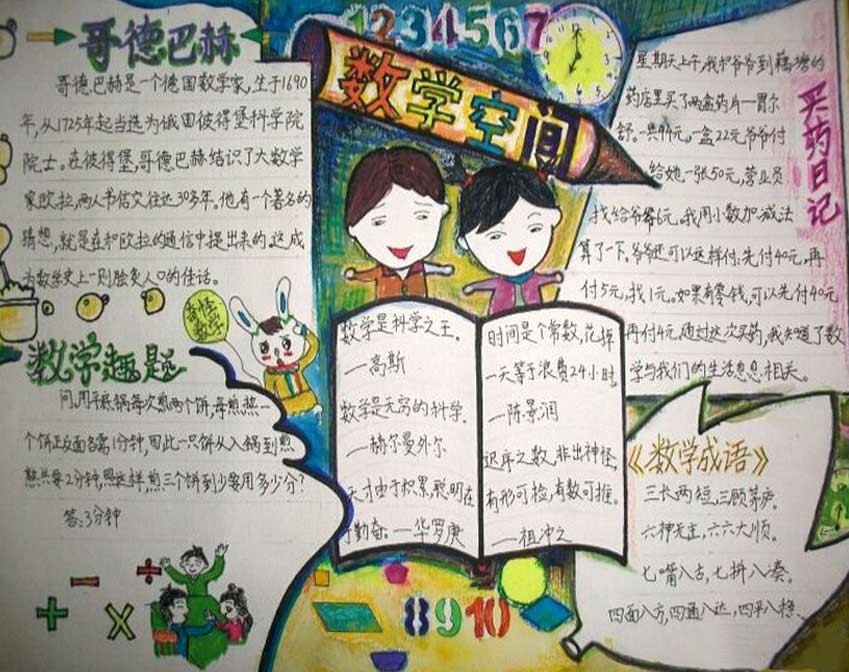 1234567
数学空间
哥德巴赫
哥德巴赫是一个德国数学家,生于1690
年,从1725年起当选为俄国彼得堡科学院
院士。在彼得堡,哥德巴赫结识了大数学
家欧拉,两人书信交往达30多年。他有一个著名的
猜想,就是在和欧拉的通信中提出来的。这成
为数学史上一则脍炙人口的佳话。
奇怪
数学
数学趣题
问,用平底锅每次煎两个饼,每煎熟一
个饼正反面各需1分钟,因此一只饼从入锅到煎
熟共要2分钟,照这样,煎三个饼到少要用多少分?
答:3分钟
+ − ÷ ×
数学是科学之王。
—高斯
数学是无穷的科学。
—赫尔曼外尔
天才由于积累,聪明在
于勤奋。—华罗庚
时间是个常数,花掉
一天等于浪费24小时。
—陈景润
迟序之数,非出神怪,
有形可检,有数可推。
—祖冲之
8910
买药日记
星期天上午,我和爷爷到 塘的
药店里买了两盒药片—胃尔
舒。一共44元,一盒22元爷爷付
给她一张50元,营业员
找给爷爷6元。我用小数加减法
算了一下。爷爷还可以这样付:先付40元,再
付5元,找1元。如果有零钱,可以先付40元
再付4元。通过这次买药,我知道了数
学与我们的生活息息相关。
《数学成语》
三长两短,三顾茅庐。
六神无主,六六大顺。
七嘴八舌,七拼八凑。
四面八方,四通八达,四平八稳。